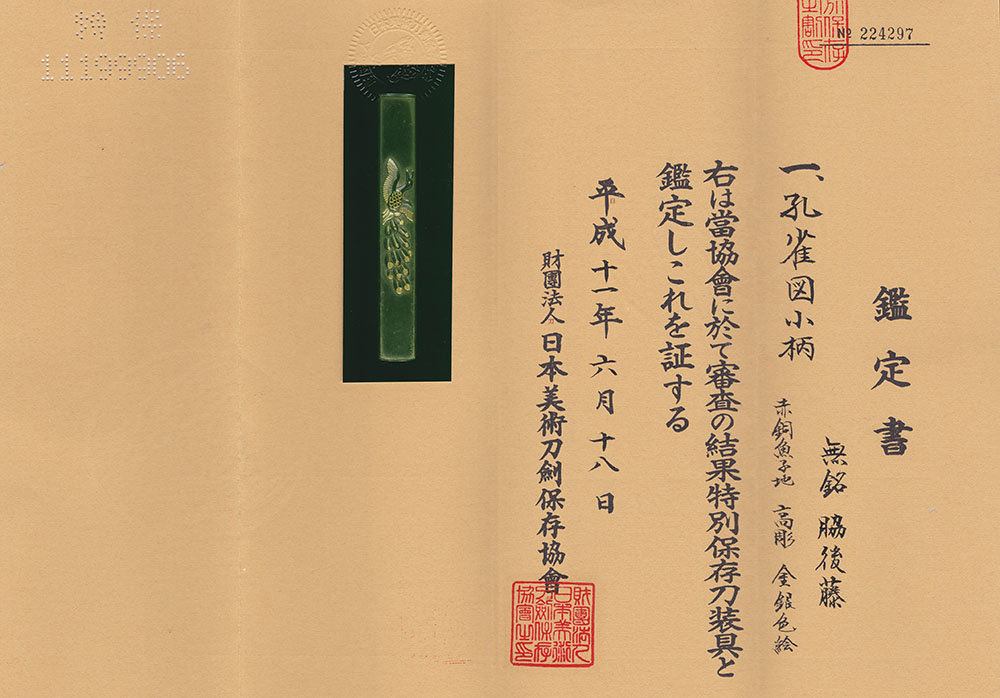 № 224297
鑑定書
無銘 脇後藤
一、孔雀図小柄
赤銅魚子地 高彫 金銀色絵
右は當協會に於て審査の結果特別保存刀装具と
鑑定しこれを証する
平成十一年六月十八日
財團法人日本美術刀劍保存協會
財團法人
日本美術
刀劍保存
協會之印
特保
11199906